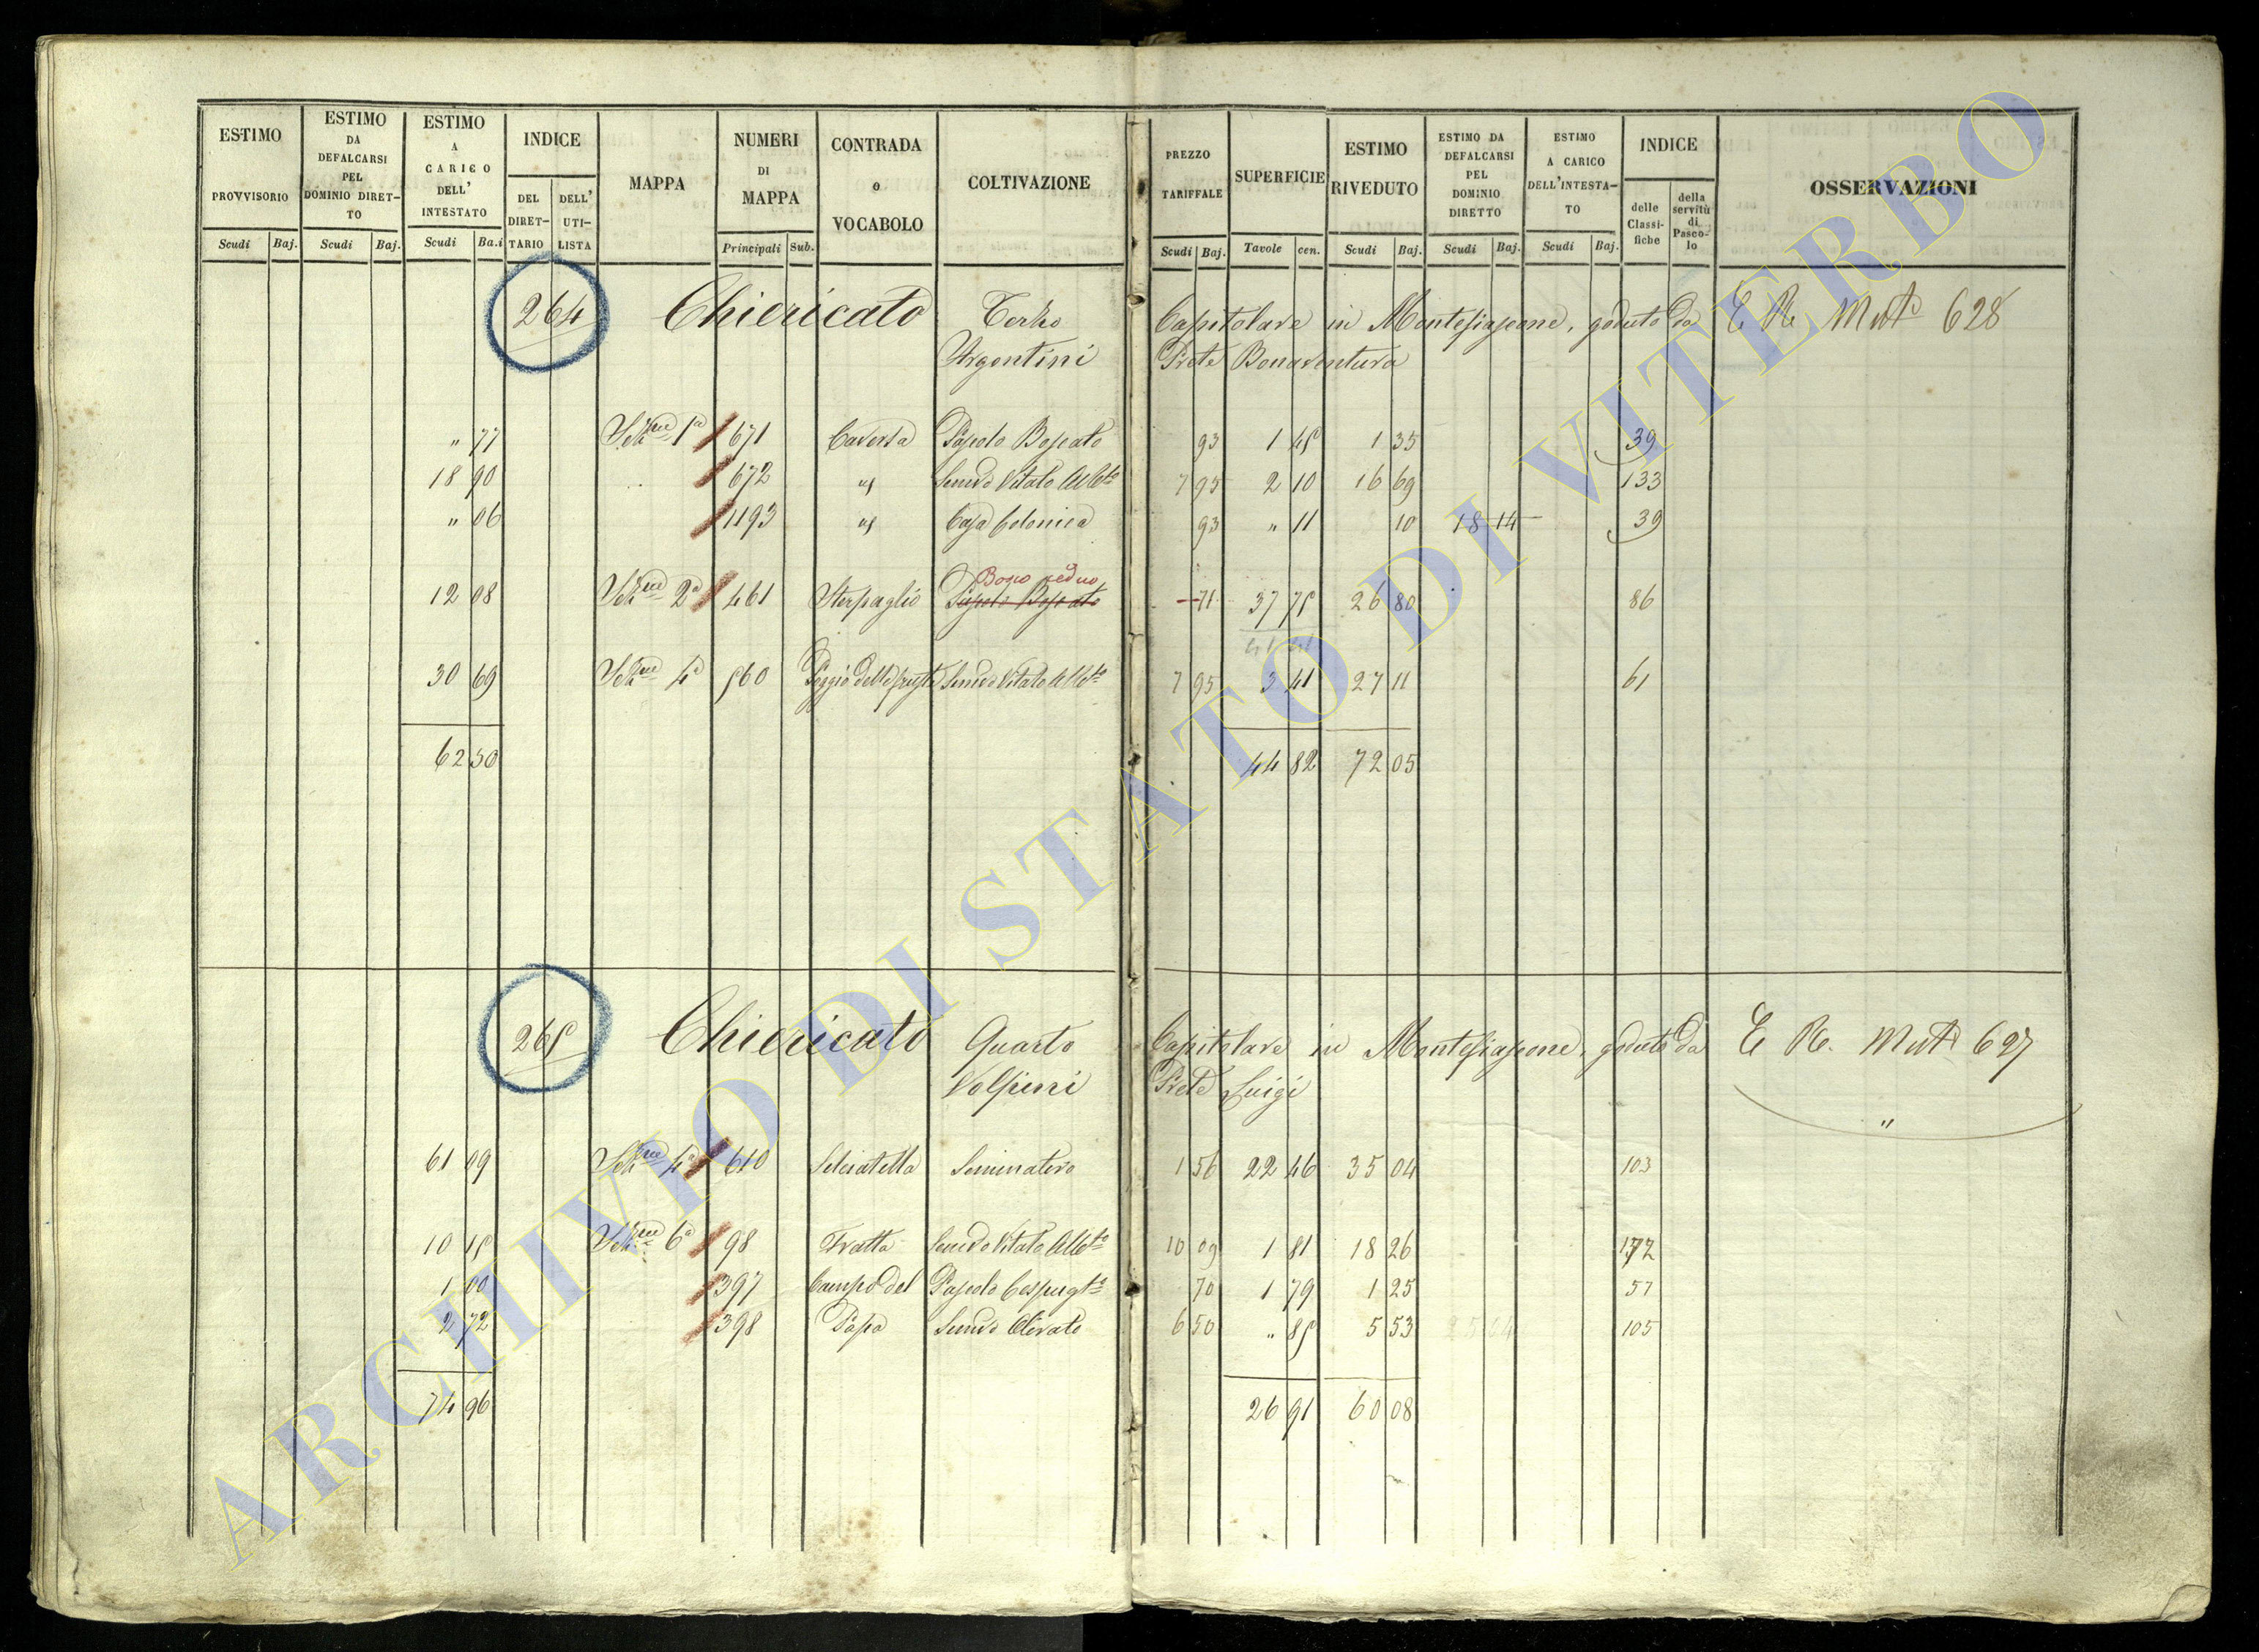 ESTIMO PROVVISORIO
ESTIMO DA DEFALCARSI PEL DOMINIO DIRET-TO
ESTIMO A CARICO DELL' INTESTATO
INDICE
DEL DIRET-TARIO
DELL' UTI-LISTA
MAPPA
NUMERI DI MAPPA
CONTRADA o VOCABOLO
COLTIVAZIONE
PREZZO TARIFFALE
SUPERFICIE
ESTIMO RIVEDUTO
ESTIMO DA DEFALCARSI PEL DOMINIO DIRETTO
ESTIMO A CARICO DELL'INTESTA-TO
INDICE
delle Classi-fiche
della servitù di Pasco-lo
OSSERVAZIONI
Scudi Baj. Scudi Baj. Scudi Ba.i Principali Sub. Scudi Baj. Tavole cen. Scudi Baj. Scudi Baj. Scudi Baj.
264 Chiericato Terzo Capitolare in Montefiascone, goduto da E R Mut 628
Argentini Prete Bonaventura
" 77 1a 671 Caversa Pascolo Boscato 93 1 45 1 35 39
18 90 672 Vitato 7 95 2 10 16 69 133
" 06 1193 Casa Colonica 93 " 11 10 18 14 39
Bosco ceduo
12 08 2a 461 Sterpaglio Pascolo Boscato 71 37 75 26 80 86
30 69 4a 560 Poggio della Vitato 7 95 3 41 27 11 61
62 50 44 82 72 05
265 Chiericato Quarto Capitolare in Montefiascone, goduto da E R. Mut 627
Volpini Prete Luigi
"
61 09 4a 640 Selciatella Seminativo 1 56 22 46 35 04 103
10 15 6a 98 Fratta Vitato 10 09 1 81 18 26 172
1 00 397 Campo del Pascolo Cespugto 70 1 79 1 25 57
2 72 398 Papa Olivato 6 50 " 85 5 53 105
74 96 26 91 60 08
ARCHIVIO DI STATO DI VITERBO